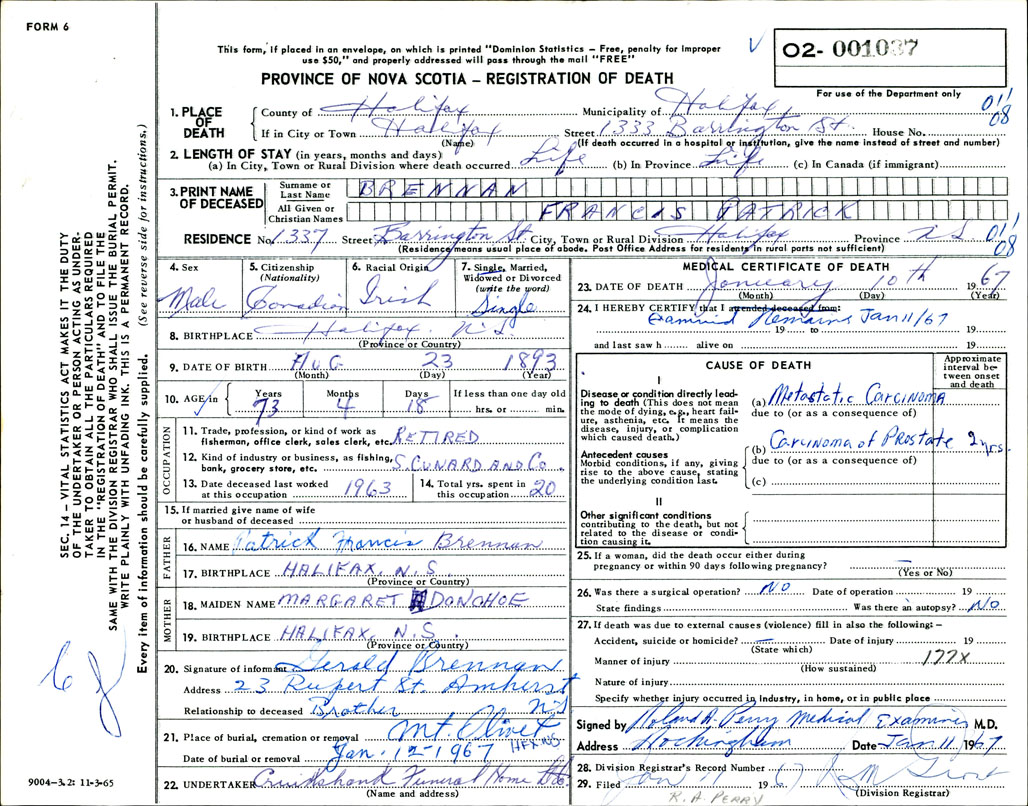 FORM 6
This form, if placed in an envelope, on which is printed "Dominion Statistics — Free, penalty for improper
use $50," and properly addressed will pass through the mail "FREE"
PROVINCE OF NOVA SCOTIA — REGISTRATION OF DEATH
02- 001037
For use of the Department only
011
08
1. PLACE OF DEATH
County of Halifax Municipality of Halifax
If in City or Town Halifax Street 1333 Barrington St. House No.
(Name) (If death occurred in a hospital or institution, give the name instead of street and number)
2. LENGTH OF STAY (in years, months and days)
(a) In City, Town or Rural Division where death occurred Life (b) In Province Life (c) In Canada (if immigrant)
3. PRINT NAME OF DECEASED
Surname or Last Name BRENNAN
All Given or Christian Names FRANCIS PATRICK
RESIDENCE No. 1337 Street Barrington St. City, Town or Rural Division Halifax Province NS
(Residence means usual place of abode. Post Office Address for residents in rural parts not sufficient)
011
08
4. Sex
Male
5. Citizenship
(Nationality)
Canadian
6. Racial Origin
Irish
7. Single, Married,
Widowed or Divorced
(write the word)
Single
8. BIRTHPLACE Halifax N.S.
(Province or Country)
9. DATE OF BIRTH AUG 23 1893
(Month) (Day) (Year)
10. AGE in
Years Months Days If less than one day old
73 4 18 hrs. or min.
OCCUPATION
11. Trade, profession, or kind of work as
fisherman, office clerk, sales clerk, etc. RETIRED
12. Kind of industry or business, as fishing,
bank, grocery store, etc. S. CUNARD AND Co.
13. Date deceased last worked
at this occupation 1963
14. Total yrs. spent in
this occupation 20
15. If married give name of wife
or husband of deceased
FATHER
16. NAME Patrick Francis Brennan
17. BIRTHPLACE HALIFAX, N.S.
(Province or Country)
MOTHER
18. MAIDEN NAME MARGARET DONOHOE
19. BIRTHPLACE HALIFAX, N.S.
(Province or Country)
20. Signature of informant Gerald Brennan
Address 23 Rupert St. Amherst
NS
Relationship to deceased Brother
21. Place of burial, cremation or removal Mt. Olivet
HFX NS
Date of burial or removal Jan. 12-1967
22. UNDERTAKER Cruikshank Funeral Home Ltd.
(Name and address)
MEDICAL CERTIFICATE OF DEATH
23. DATE OF DEATH January 10th 1967
(Month) (Day) (Year)
24. I HEREBY CERTIFY that I attended deceased from:
Examined Remains Jan 11/67
19 to 19
and last saw h alive on 19
CAUSE OF DEATH
Approximate
interval be-
tween onset
and death
I
Disease or condition directly lead-
ing to death (This does not mean
the mode of dying, e.g., heart fail-
ure, asthenia, etc. It means the
disease, injury, or complication
which caused death.)
(a) Metastatic Carcinoma
due to (or as a consequence of)
Antecedent causes
Morbid conditions, if any, giving
rise to the above cause, stating
the underlying condition last.
(b) Carcinoma of Prostate 2 yrs.
due to (or as a consequence of)
(c)
II
Other significant conditions
contributing to the death, but not
related to the disease or condi-
tion causing it.
25. If a woman, did the death occur either during
pregnancy or within 90 days following pregnancy? —
(Yes or No)
26. Was there a surgical operation? NO Date of operation 19
State findings Was there an autopsy? NO
27. If death was due to external causes (violence) fill in also the following: —
Accident, suicide or homicide? — Date of injury 19
(State which)
Manner of injury 177X
(How sustained)
Nature of injury
Specify whether injury occurred in industry, in home, or in public place
Signed by Roland A. Perry Medical Examiner M.D.
Address Rockingham Date Jan 11, 1967
28. Division Registrar's Record Number
29. Filed Jan 11 1967
(Division Registrar)
R.A. PERRY
SEC. 14 — VITAL STATISTICS ACT MAKES IT THE DUTY
OF THE UNDERTAKER OR PERSON ACTING AS UNDER-
TAKER TO OBTAIN ALL THE PARTICULARS REQUIRED
IN THE "REGISTRATION OF DEATH" AND TO FILE THE
SAME WITH THE DIVISION REGISTRAR WHO SHALL ISSUE THE BURIAL PERMIT.
WRITE PLAINLY WITH UNFADING INK. THIS IS A PERMANENT RECORD.
Every item of information should be carefully supplied. (See reverse side for instructions.)
9004-3.2: 11-3-65